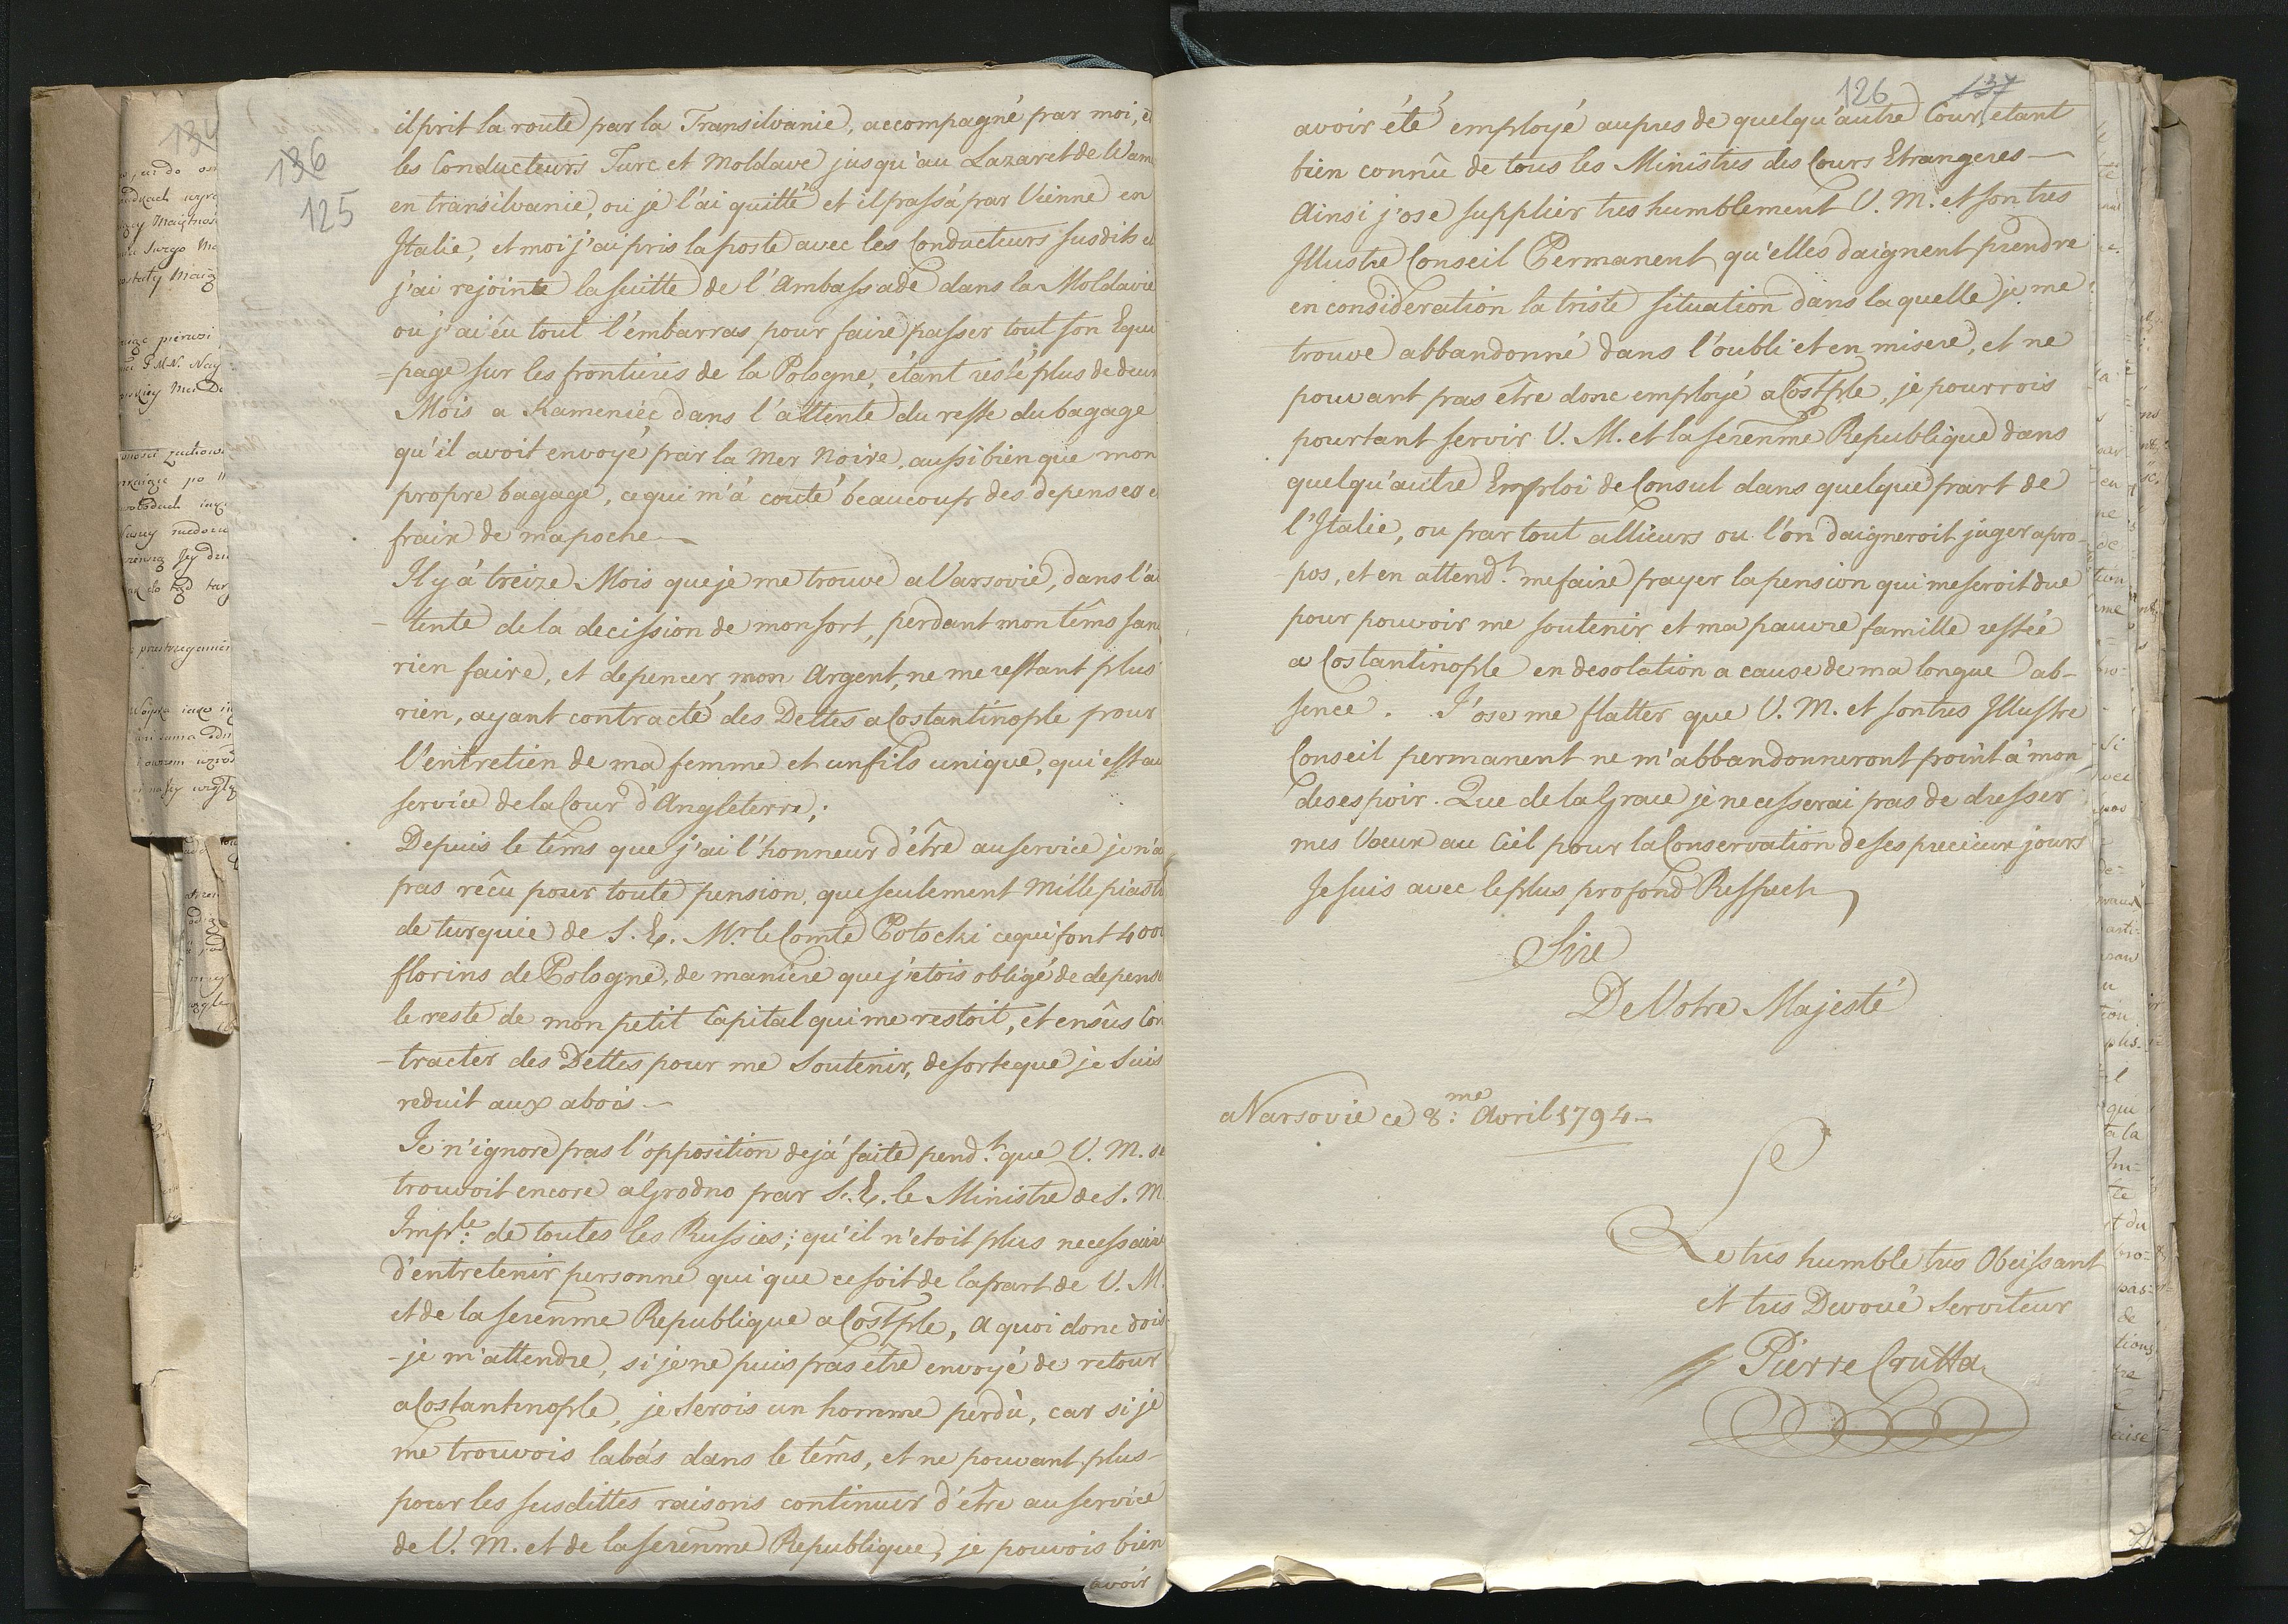 136
125
il prit la route par la Transilvanie, accompagné par moi, et
les Conducteurs Turc et Moldave jusqu'au Lazaret de Wam
en transilvanie, ou je l'ai quitté et il passá par Vienne en
Italie, et moi j'ai pris la poste avec les Conducteurs susdits et
j'ai rejointe la suitte de l'Ambassade dans la Moldavie
ou j'ai êu tout l'embarras pour faire passer tout son Equi
=page sur les frontieres de la Pologne, étant resté plus de deux
Mois a Kameniéc dans l'attente du reste du bagage
qu'il avoit envoyé par la Mer Noire, aussi bien que mon
propre bagage, ce qui m'á couté beaucoup des depenses e
fraix de ma poche —
Il y á treize Mois que je me trouve a Varsovie, dans l'at
-tente de la decission de mon sort, perdant mon têms sans
rien faire, et depencer mon Argent, ne me restant plus
rien, ayant contracté des Dettes a Costantinople pour
l'entretien de ma femme et un fils unique, qui est au
service de la Cour d'Angleterre;
Depuis le têms que j'ai l'honneur d'être au service je n'ai
pas reçu pour toute pension, que seulement Mille piast
de turquie de S. E. Mr. le Comte Potocki ce qui font 4000
florins de Pologne, de maniere que j'etois obligé de depens
le reste de mon petit Capital qui me restoit, et ensûs Con
-tracter des Dettes pour me Soutenir, de sorte que je Suis
reduit aux abois —
Je n'ignore pas l'opposition dejá faite pend.t que V. M. se
trouvoit encore a Grodno par S. E. le Ministre de S. M.
Imp.le de toutes les Russies; qu'il n'etoit plus necessaire
d'entretenir personne qui que ce soit de la part de V. M.
et de la serenme Republique a Costple, a quoi donc dois
-je m'attendre, si je ne puis pas etre envoyé de retour
a Costantinople, je serois un homme perdù, car si je
me trouvois labás dans le têms, et ne pouvant plus
pour les susdittes raisons continuer d'être au service
de V. M. et de la serenme Republique, je pouvois bien
avoir
126
137
avoir été employé aupres de quelqu'autre Cour, etant
bien connû de tous les Ministres des Cours Etrangeres —
Ainsi j'ose supplier tres humblement V. M. et son tres
Illustre Conseil Permanent qu'elles daignent prendre
en consideration la triste situation dans la quelle je me
trouve abbandonné dans l'oubli et en misere, et ne
pouvant pas être donc employé a Costple, je pourrois
pourtant servir V. M. et la serenme Republique dans
quelqu'autre Emploi de Consul dans quelque part de
l'Italie, ou par tout allieurs ou l'on daigneroit juger apro-
pos, et en attend.t me faire payer la pension qui me seroit due
pour pouvoir me soutenir et ma pauvre famille restée
a Costantinople en desolation a cause de ma longue ab-
sence. J'ose me flatter que V. M. et son tres Illustre
Conseil permanent ne m'abbandonneront point á mon
desespoir. Que de la Grace je ne cesserai pas de dresser
mes Vœux au Ciel pour la Conservation de ses precieux jours
Je suis avec le plus profond Respect
Sire
De Votre Majesté
a Varsovie ce 8:me Avril 1794 —
Le tres humble tres Obeissant
et tres Devoué Serviteur
Pierre Crutta